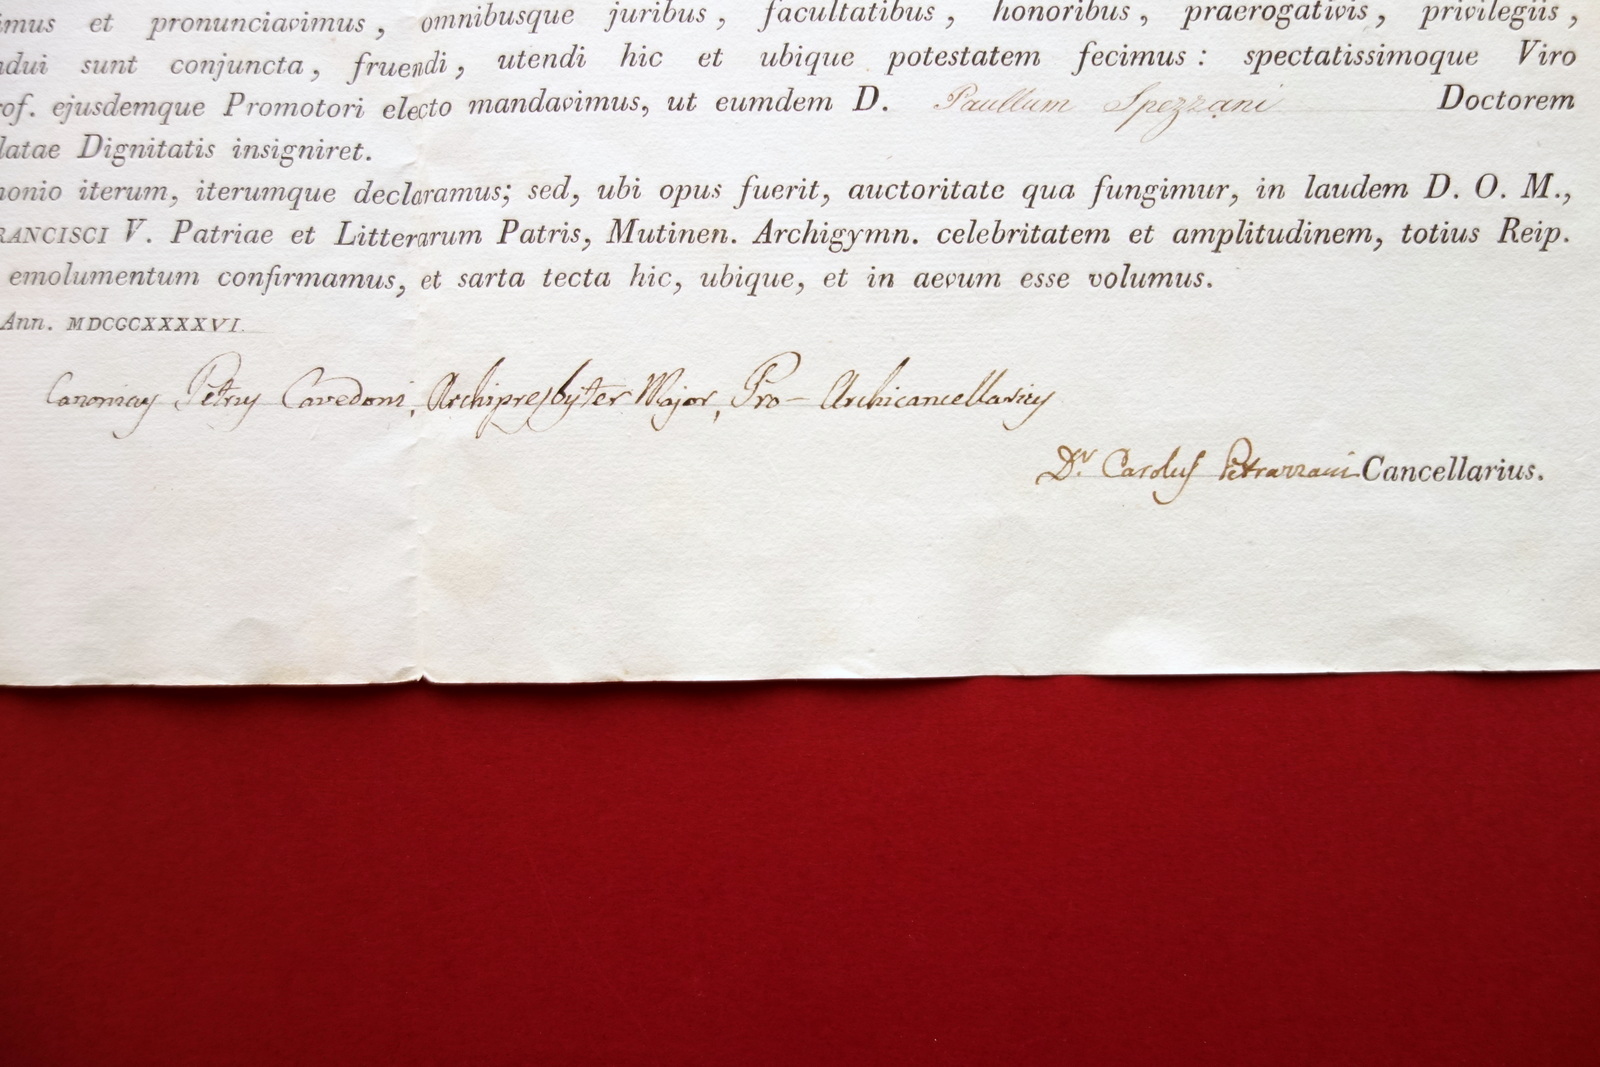 imus et pronunciavimus, omnibusque juribus, facultatibus, honoribus, praerogativis, privilegiis,
ndui sunt conjuncta, fruendi, utendi hic et ubique potestatem fecimus: spectatissimoque Viro
rof. ejusdemque Promotori electo mandavimus, ut eumdem D. Paullum Spezzani Doctorem
latae Dignitatis insigniret.
monio iterum, iterumque declaramus; sed, ubi opus fuerit, auctoritate qua fungimur, in laudem D. O. M.,
RANCISCI V. Patriae et Litterarum Patris, Mutinen. Archigymn. celebritatem et amplitudinem, totius Reip.
emolumentum confirmamus, et sarta tecta hic, ubique, et in aevum esse volumus.
Ann. MDCCCXXXXVI.
Canonicus Petrus Cavedoni, Archipresbyter Major, Pro-Archicancellarius
Dr. Carolus Petrazzani Cancellarius.